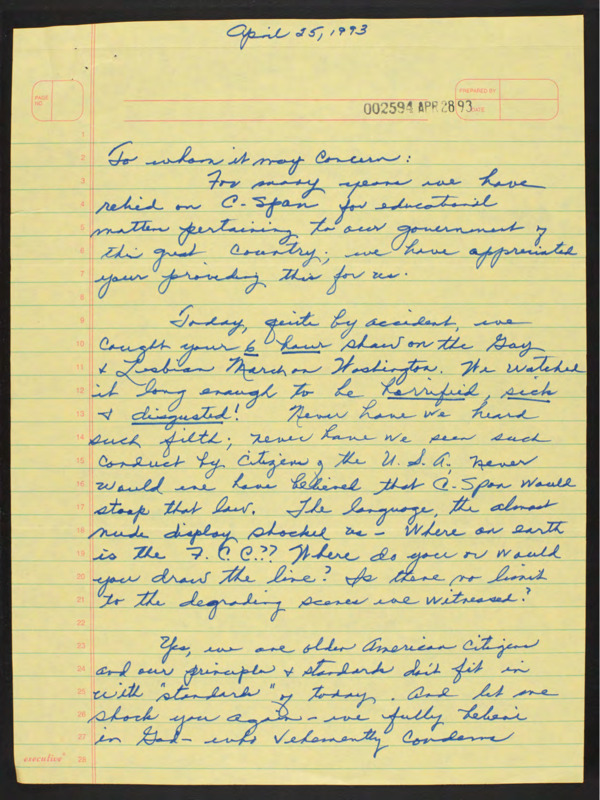 April 25, 1993
PAGE NO.
PREPARED BY
002594 APR 28 93
DATE
1
2 To whom it may concern:
3 For many years we have
4 relied on C-Span for educational
5 matters pertaining to our government of
6 this great country; we have appreciated
7 your providing this for us.
8
9 Today, quite by accident, we
10 caught your 6 hour show on the Gay
11 & Lesbian March on Washington. We watched
12 it long enough to be horrified, sick
13 & disgusted! Never have we heard
14 such filth; never have we seen such
15 conduct by citizens of the U.S.A.; never
16 would we have believed that C-Span would
17 stoop that low. The language, the almost
18 nude display shocked us - Where on earth
19 is the F.C.C.?? Where do you or would
20 you draw the line? Is there no limit
21 to the degrading scenes we witnessed?
22
23 Yes, we are older American citizens
24 and our principles & standards don't fit in
25 with "standards" of today. And let me
26 shock you again - we fully believe
27 in God - who vehemently condemns
28
executive